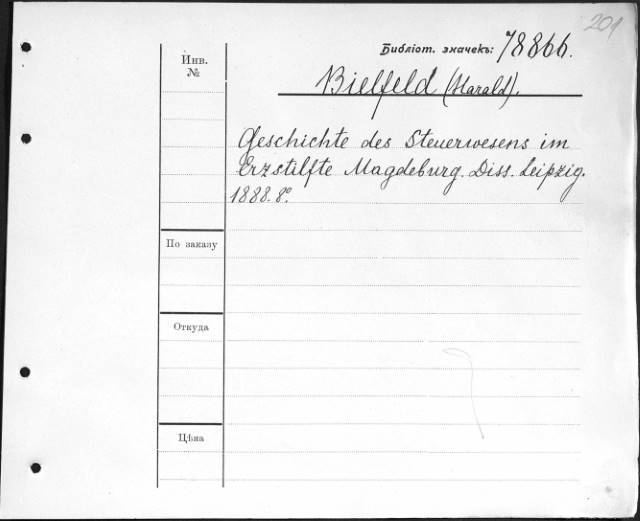 201
Библіот. значекъ: 78866.
Инв.
№
Bielfeld (Harald).
Geschichte des Steuerwesens im
Erzstilfte Magdeburg. Diss. Leipzig.
1888. 8º.
По заказу
Откуда
Цѣна